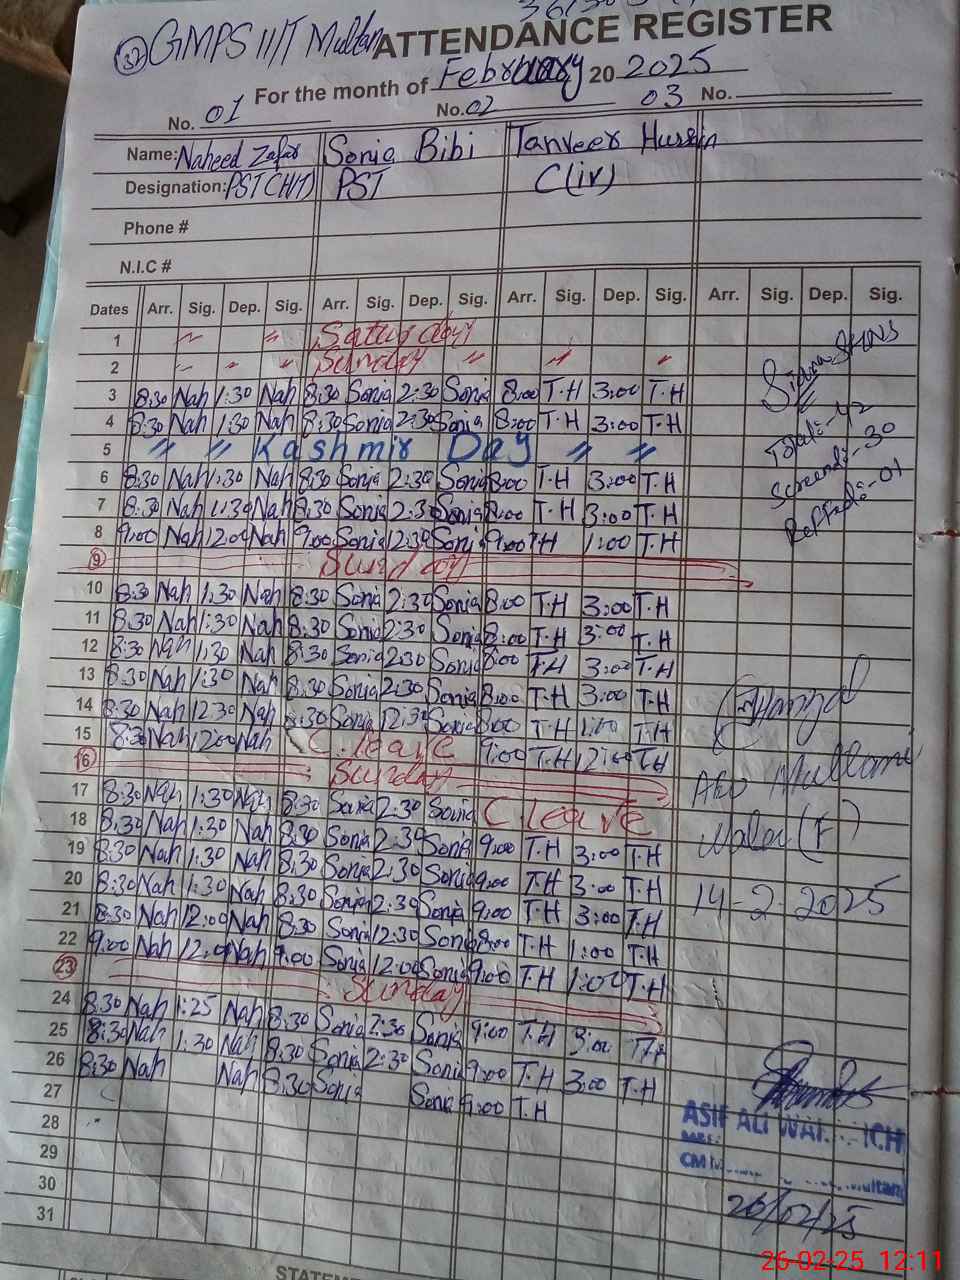 GMPS 11/T Multan ATTENDANCE REGISTER
For the month of February 20 2025
No. 01 No. 02 03 No.
Name: Naheed Zafar Sonia Bibi Tanveer Hussain
Designation: PST (H/T) PST C(iv)
Phone #
N.I.C #
Dates Arr. Sig. Dep. Sig. Arr. Sig. Dep. Sig. Arr. Sig. Dep. Sig. Arr. Sig. Dep. Sig.
1 " " Saturday
2 " " " Sunday " " "
3 8:30 Nah 1:30 Nah 8:30 Sonia 2:30 Sonia 8:00 T.H 3:00 T.H
4 8:30 Nah 1:30 Nah 8:30 Sonia 2:30 Sonia 8:00 T.H 3:00 T.H
5 " " Kashmir Day " "
6 8:30 Nah 1:30 Nah 8:30 Sonia 2:30 Sonia 8:00 T.H 3:00 T.H
7 8:30 Nah 1:30 Nah 8:30 Sonia 2:30 Sonia 8:00 T.H 3:00 T.H
8 9:00 Nah 12:00 Nah 9:00 Sonia 12:30 Sonia 9:00 T.H 1:00 T.H
9 Sunday
10 8:30 Nah 1:30 Nah 8:30 Sonia 2:30 Sonia 8:00 T.H 3:00 T.H
11 8:30 Nah 1:30 Nah 8:30 Sonia 2:30 Sonia 8:00 T.H 3:00 T.H
12 8:30 Nah 1:30 Nah 8:30 Sonia 2:30 Sonia 8:00 T.H 3:00 T.H
13 8:30 Nah 1:30 Nah 8:30 Sonia 2:30 Sonia 8:00 T.H 3:00 T.H
14 8:30 Nah 12:30 Nah 8:30 Sonia 12:30 Sonia 8:00 T.H 1:00 T.H
15 8:30 Nah 12:00 Nah C. leave 9:00 T.H 12:00 T.H
16 Sunday
17 8:30 Nah 1:30 Nah 8:30 Sonia 2:30 Sonia C leave
18 8:30 Nah 1:30 Nah 8:30 Sonia 2:30 Sonia 9:00 T.H 3:00 T.H
19 8:30 Nah 1:30 Nah 8:30 Sonia 2:30 Sonia 9:00 T.H 3:00 T.H
20 8:30 Nah 1:30 Nah 8:30 Sonia 2:30 Sonia 9:00 T.H 3:00 T.H
21 8:30 Nah 12:00 Nah 8:30 Sonia 12:30 Sonia 8:00 T.H 1:00 T.H
22 9:00 Nah 12:00 Nah 9:00 Sonia 12:00 Sonia 9:00 T.H 1:00 T.H
23 Sunday
24 8:30 Nah 1:25 Nah 8:30 Sonia 2:30 Sonia 9:00 T.H 3:00 T.H
25 8:30 Nah 1:30 Nah 8:30 Sonia 2:30 Sonia 9:00 T.H 3:00 T.H
26 8:30 Nah Nah 8:30 Sonia Sonia 9:00 T.H
27
28
29
30
31
Total:- 42
Screend:- 30
Reffad:- 01
AEO
(F)
14-2-2025
ASIF ALI
CM
26/02/25
26-02-25 12:11